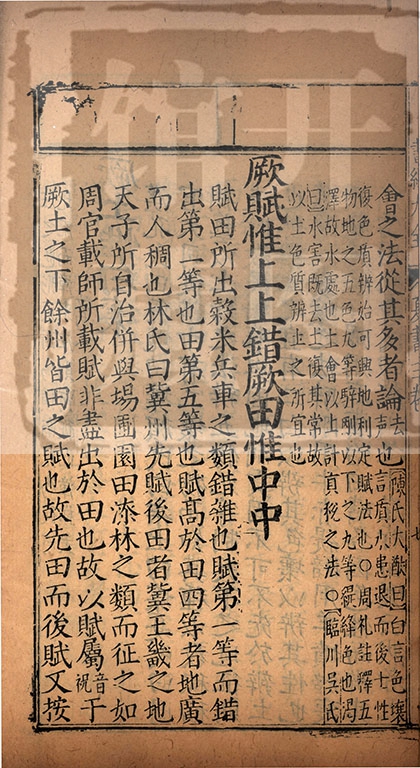 會之法從其多者論去聲也陳氏大猷曰色壤
言質水患退而後土性
復色質辨始可興地利定賦法也○周禮註釋五
物地之五色九等騂剛以下之九等縓絳色也渴
澤故水處也土會以土計貢稅之法○臨川吳氏
曰水害既去土復其常故
以土色質辨土之所宜也
厥賦惟上上錯厥田惟中中
賦田所出穀米兵車之類錯雜也賦第一等而錯
出第一等也田第五等也賦髙於田四等者地廣
而人稠也林氏曰冀州先賦後田者冀王畿之地
天子所自治併與場圃園田漆林之類而征之如
周官載師所載賦非盡出於田也故以賦屬音祝于
厥土之下餘州皆田之賦也故先田而後賦又按